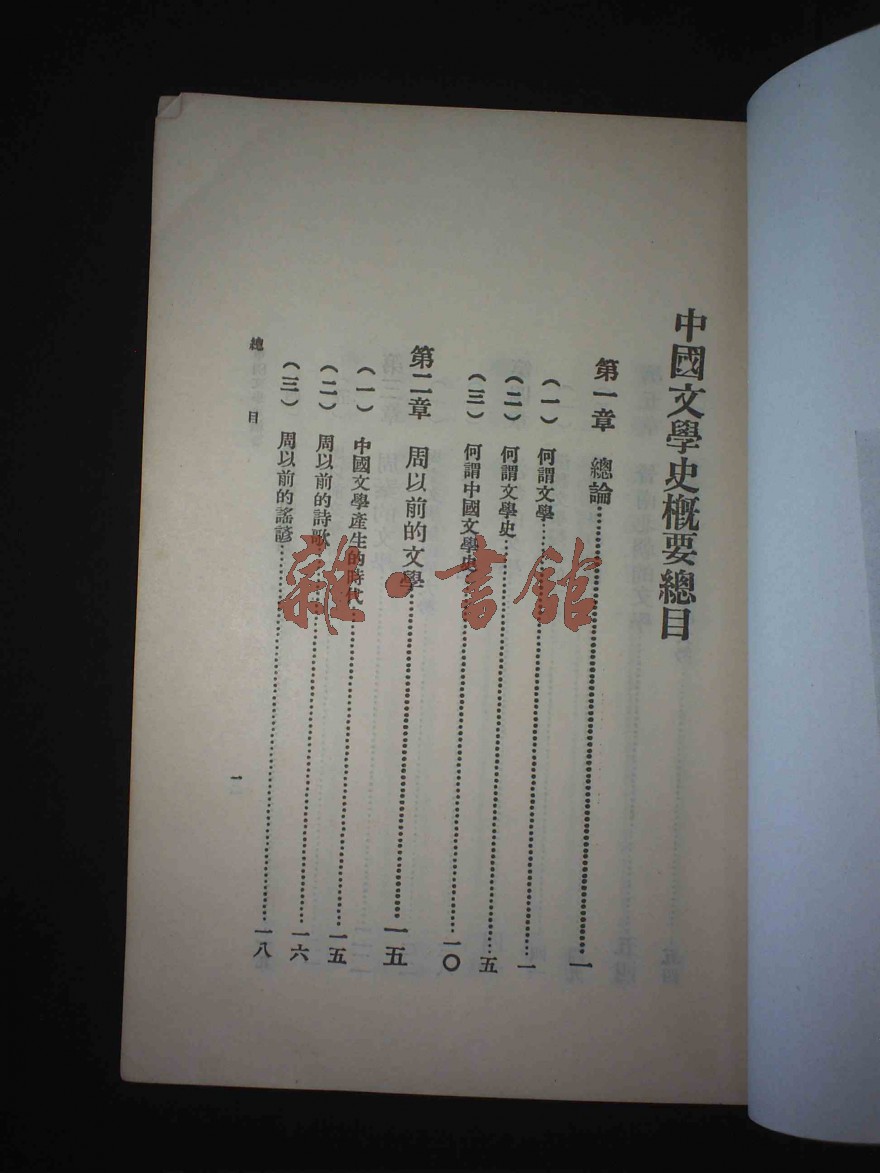 中國文學史概要總目
第一章 總論……一
(一) 何謂文學……一
(二) 何謂文學史……五
(三) 何謂中國文學史……一〇
第二章 周以前的文學……一五
(一) 中國文學產生的時代……一五
(二) 周以前的詩歌……一六
(三) 周以前的謠諺……一八
總目
一
雜·書館